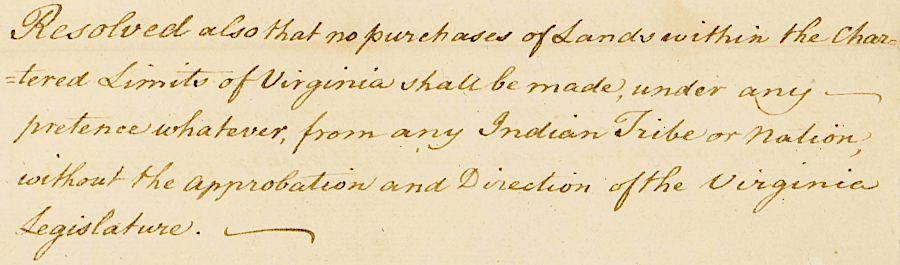 Resolved also that no purchases of Lands within the Char=
=tered Limits of Virginia shall be made, under any —
pretence whatever, from any Indian Tribe or Nation,
without the approbation and Direction of the Virginia
Legislature. —